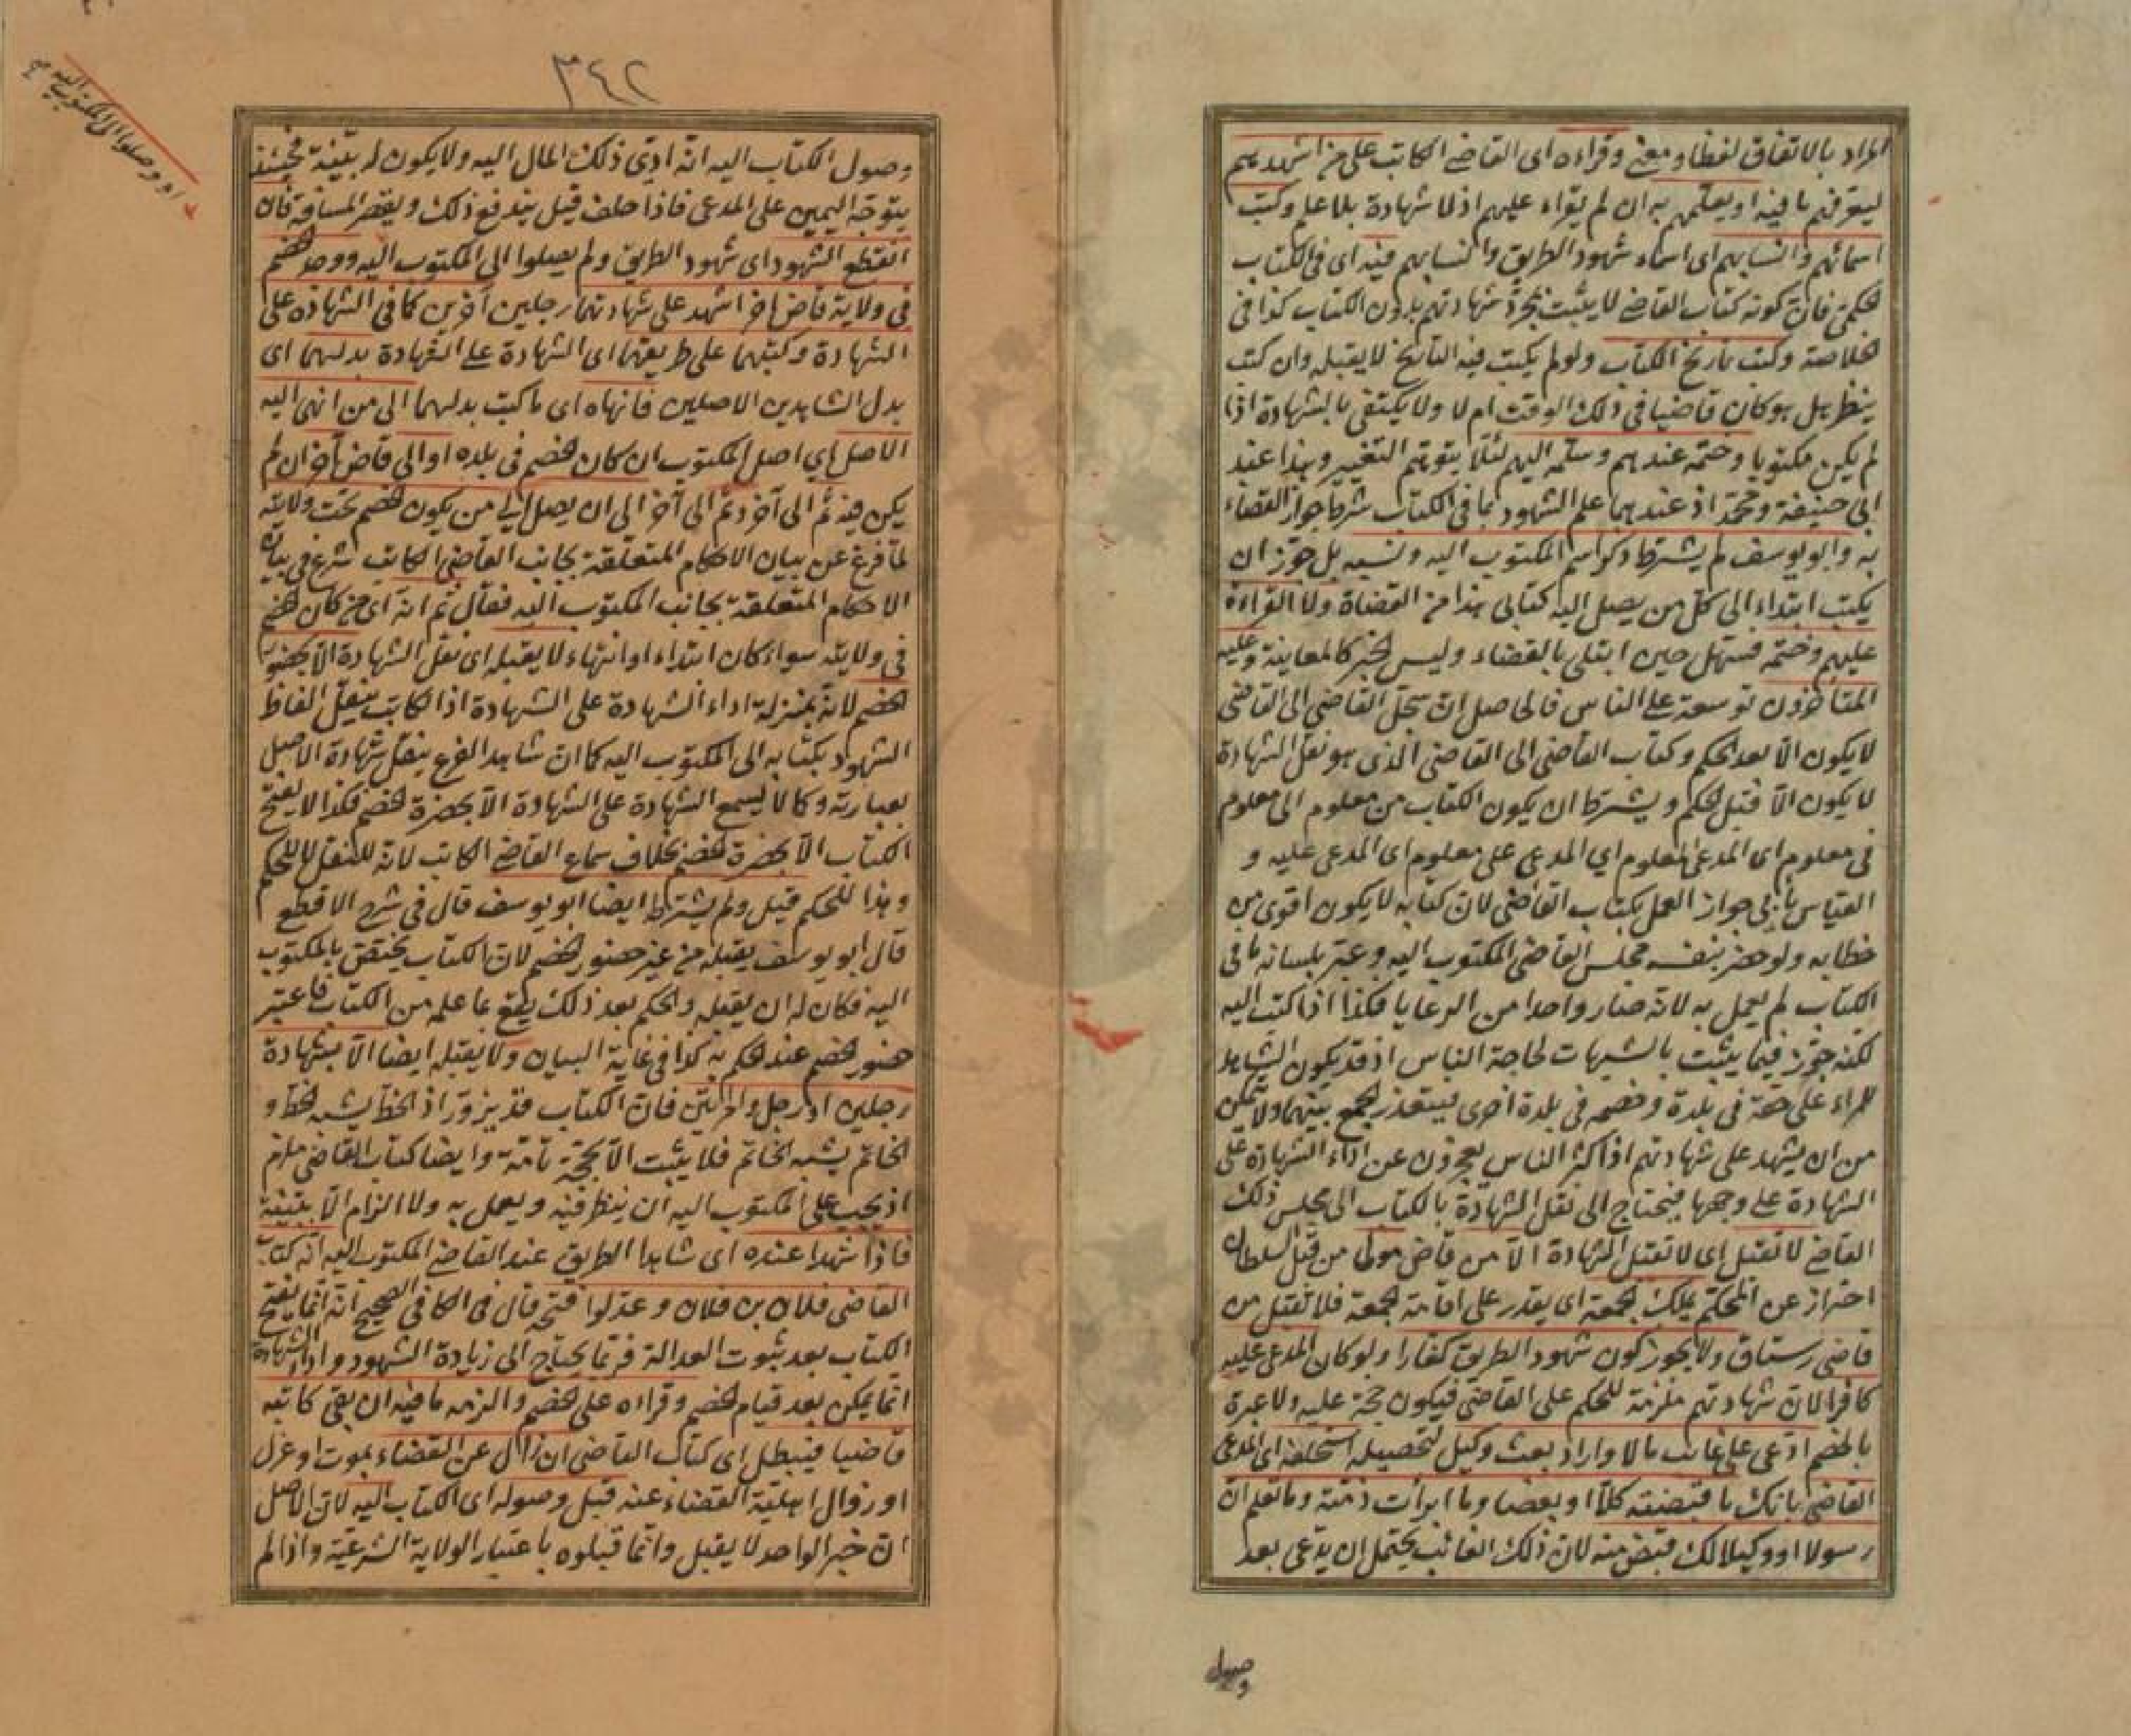 المراد بالاتفاق لفظا ومعنى وقراءه اى القاضى الكاتب على من اشهدهم
ليعرفهم ما فيه او يعلمهم به ان لم يقراء عليهم اذ لا شهادة بلا علم وكتب
اسمائهم وانسابهم اى اسماء شهود الطريق وانسابهم فيه اى فى الكتاب
الحكمى فان كونه كتاب القاضى لا يثبت بمجرد شهادتهم بدون الكتاب كذا فى
الخلاصة وكتب تاريخ الكتاب ولو لم يكتب فيه التاريخ لا يقبله وان كتب
ينظر هل هو كان قاضيا فى ذلك الوقت ام لا ولا يكتفى بالشهادة اذا
لم يكن مكتوبا وختمه عندهم وسلمه اليهم لئلا يتوهم التغيير وهذا عند
ابى حنيفة ومحمد اذ عندهما علم الشهود بما فى الكتاب شرط جواز القضاء
به وابو يوسف لم يشترط ذكر اسم المكتوب اليه ونسبه بل جوز ان
يكتب ابتداء الى كل من يصل اليه كتابى هذا من القضاة ولا القراءة
عليهم وختمه فسهل حين ابتلى بالقضاء وليس الخبر كالمعاينة وعليه
المتأخرون توسعة على الناس فالحاصل ان سجل القاضى الى القاضى
لا يكون الا بعد الحكم وكتاب القاضى الى القاضى الذى هو نقل الشهادة
لا يكون الا قبل الحكم ويشترط ان يكون الكتاب من معلوم الى معلوم
فى معلوم اى المدعى لمعلوم اي المدعى على معلوم اى المدعى عليه و
القياس يأبى جواز العمل بكتاب القاضى لان كتابه لا يكون اقوى من
خطابه ولو حضر بنفسه مجلس القاضى المكتوب اليه وعبر بلسانه ما فى
الكتاب لم يعمل به لانه صار واحدا من الرعايا فكذا اذا كتب اليه
لكنه جوز فيما يثبت بالشبهات لحاجة الناس اذ قد يكون الشاهد
للمراء على حقه فى بلدة وخصمه فى بلدة اخرى فيتعذر الجمع بينهما ولا يتمكن
من ان يشهد على شهادتهم اذ اكثر الناس يعجزون عن اداء الشهادة على
الشهادة على وجهها فيحتاج الى نقل الشهادة بالكتاب الى مجلس ذلك
القاضى لا تقبل اى لا تقبل الشهادة الا من قاض مولى من قبل السلطان
احتراز عن المحكم يملك الجمعة اى يقدر على اقامة الجمعة فلا تقبل من
قاضى رستاق ولا يجوز كون شهود الطريق كفارا ولو كان المدعى عليه
كافرا لان شهادتهم ملزمة للحكم على القاضى فيكون حجة عليه ولا عبرة
بالخصم ادعى على غائب مالا واراد بعث وكيل لتحصيله استحلفه اى المدعى
القاضى بانك ما قبضته كلا او بعضا وما ابرأت ذمته وما تعلم ان
رسولا او وكيلا لك قبض منه لان ذلك الغائب يحتمل ان يدعى بعد
وصول
٣٤٢
وصول الكتاب اليه انه ادى ذلك المال اليه ولا يكون له بينة فحينئذ
يتوجه اليمين على المدعى فاذا حلف قبل يندفع ذلك ويقصر المسافة فان
انقطع الشهود اى شهود الطريق ولم يصلوا الى المكتوب اليه ووجد الخصم
فى ولاية قاض اخر اشهد على شهادتهما رجلين آخرين كما فى الشهادة على
الشهادة وكتبهما على طريقهما اى الشهادة على الشهادة بدلهما اى
بدل الشاهدين الاصلين فانهاه اى ما كتب بدلهما الى من انهى اليه
الاصل اي اصل المكتوب ان كان الخصم فى بلده او الى قاض آخر ان لم
يكن فيه ثم الى آخر وثم الى آخر الى ان يصل الى من يكون الخصم تحت ولايته
لما فرغ عن بيان الاحكام المتعلقة بجانب القاضى الكاتب شرع فى بيان
الاحكام المتعلقة بجانب المكتوب اليه فقال ثم انه اى من كان الخصم
فى ولايته سواء كان ابتداء او انتهاء لا يقبله اى نقل الشهادة الا بحضور
الخصم لانه بمنزلة اداء الشهادة على الشهادة اذ الكاتب ينقل الفاظ
الشهود بكتابه الى المكتوب اليه كما ان شاهد الفرع ينقل شهادة الاصل
بعبارته وكما لا يسمع الشهادة على الشهادة الا بحضرة الخصم فكذا لا يفتح
الكتاب الا بحضرة الخصم بخلاف سماع القاضى الكاتب لانه للنقل لا للحكم
وهذا للحكم قيل ولم يشترط ايضا ابو يوسف قال فى شرح الاقطع
قال ابو يوسف يقبله من غير حضور الخصم لان الكتاب يختص بالمكتوب
اليه فكان له ان يقبله والحكم بعد ذلك يقع بما علمه من الكتاب فاعتبر
حضور الخصم عند الحكم به كذا فى غاية البيان ولا يقبله ايضا الا بشهادة
رجلين او رجل وامرأتين فان الكتاب قد يزور اذ الخط يشبه الخط و
الخاتم يشبه الخاتم فلا يثبت الا بحجة تامة وايضا كتاب القاضى ملزم
اذ يجب على المكتوب اليه ان ينظر فيه ويعمل به ولا الزام الا ببينة
فاذا شهدا عنده اى شاهدا الطريق عند القاضى المكتوب اليه انه كتاب
القاضى فلان بن فلان وعدلوا فتحه قال فى الكافى الصحيح انه انما يفتح
الكتاب بعد ثبوت العدالة فربما يحتاج الى زيادة الشهود واداء الشهادة
انما يمكن بعد قيام الخصم وقراه على الخصم والزمه ما فيه ان بقى كاتبه
قاضيا فيبطل اى كتاب القاضى ان زال عن القضاء بموت او عزل
او زوال اهلية القضاء عنه قبل وصوله اى الكتاب اليه لان الاصل
ان خبر الواحد لا يقبل وانما قبلوه باعتبار الولاية الشرعية واذا لم
او وصلوا الى المكتوب اليه صح